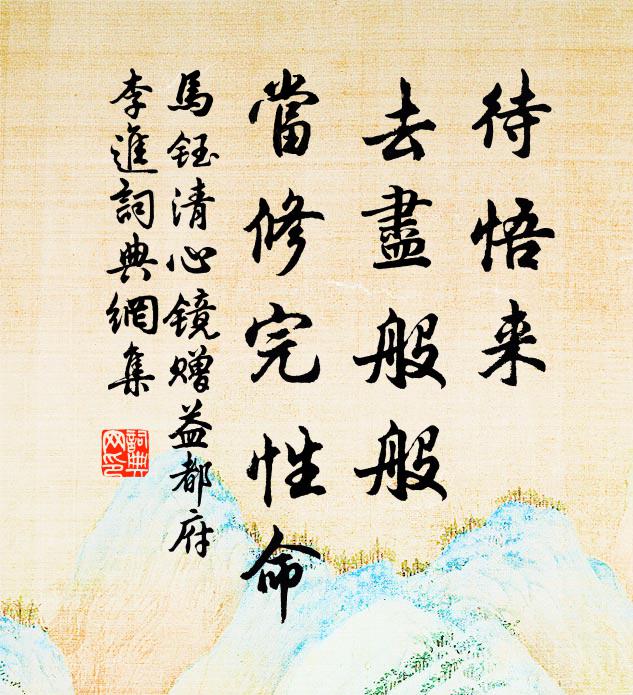 待悟来
去盡般般
當修完性命
馬鈺清心镜赠益都府
李進詞典網集
詞典
网印